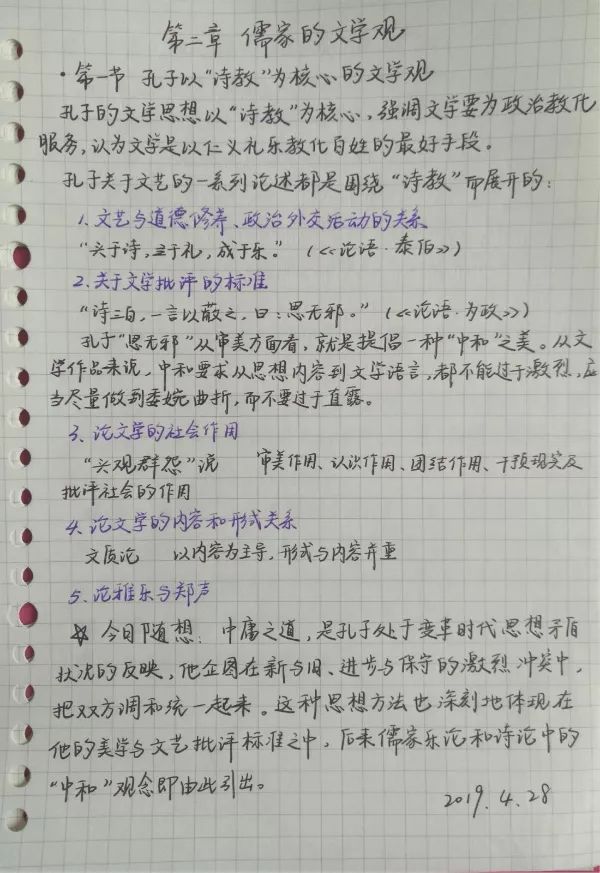 第二章 儒家的文学观
·第一节 孔子以“诗教”为核心的文学观
孔子的文学思想以“诗教”为核心，强调文学要为政治教化
服务，认为文学是以仁义礼乐教化百姓的最好手段。
孔子关于文艺的一系列论述都是围绕“诗教”而展开的：
1.文艺与道德修养、政治外交活动的关系
“兴于诗，立于礼，成于乐。”（《论语·泰伯》）
2.关于文学批评的标准
“诗三百，一言以蔽之，曰：思无邪。”（《论语·为政》）
孔子“思无邪”从审美方面看，就是提倡一种“中和”之美。从文
学作品来说，中和要求从思想内容到文学语言，都不能过于激烈，应
当尽量做到委婉曲折，而不要过于直露。
3.论文学的社会作用
“兴观群怨”说 审美作用、认识作用、团结作用、干预现实及
批评社会的作用
4.论文学的内容和形式关系
文质论 以内容为主导，形式与内容并重
5.论雅乐与郑声
☆ 今日随想：中庸之道，是孔子处于变革时代思想矛盾
状况的反映，他企图在新与旧、进步与保守的激烈冲突中，
把双方调和统一起来。这种思想方法也深刻地体现在
他的美学与文艺批评标准之中，后来儒家乐论和诗论中的
“中和”观念即由此引出。
2019.4.28